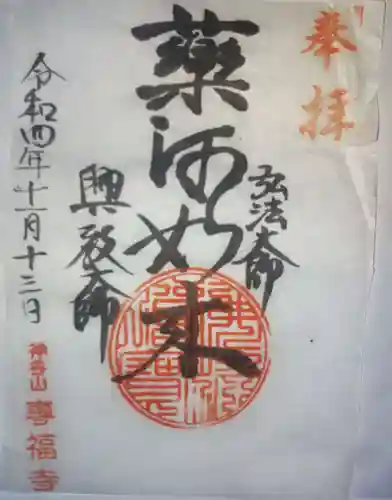 奉拝
弘法大師
薬師如来
興教大師
令和四年十一月十三日
専福寺